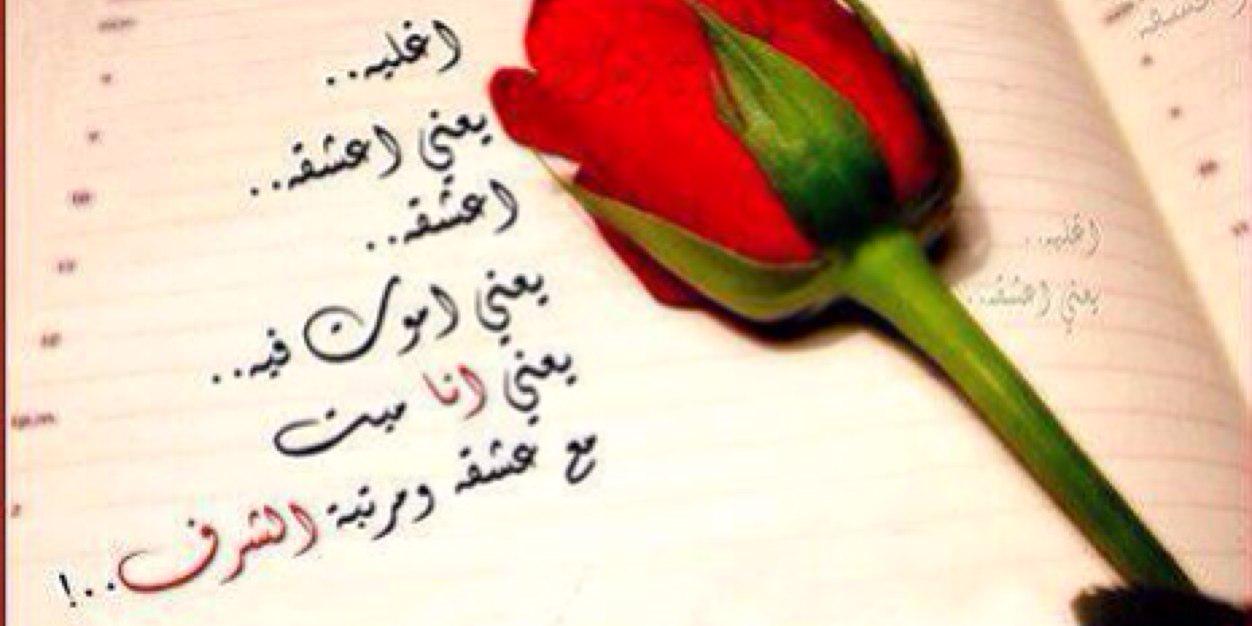 اغليه..
يعني اعشقه..
اعشقه..
يعني اموت فيه..
يعني انا ميت
مع عشقه ومرتبة الشرف..!
اغليه..
يعني اعشقه..